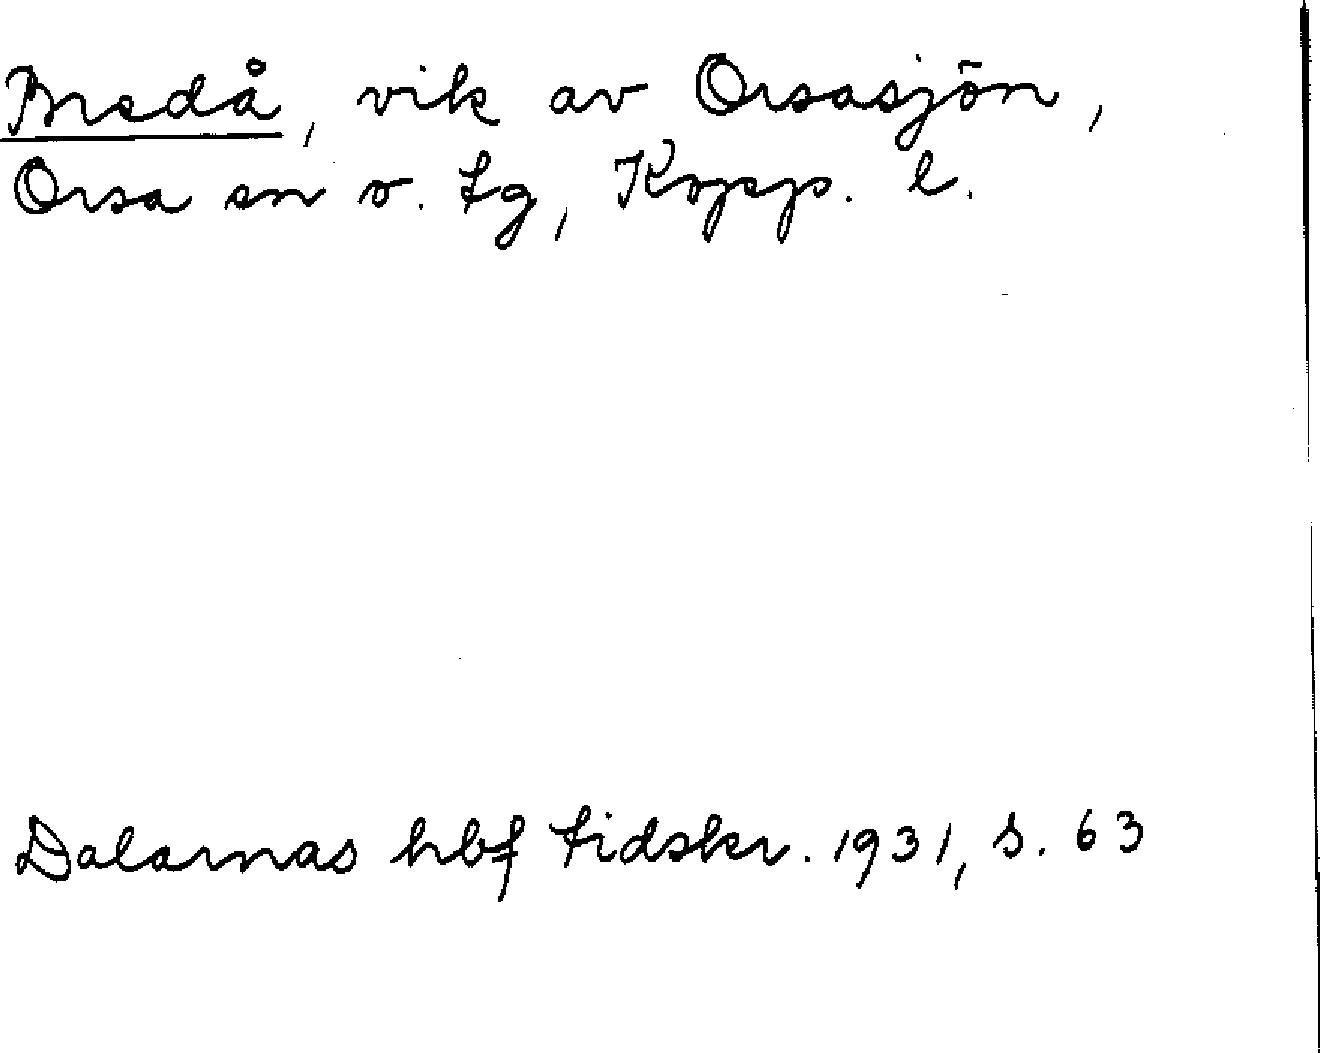 Bredå, vik av Orsasjön,
Orsa sn o. tg, Kopp. l.
Dalarnas hbf tidskr. 1931, s. 63